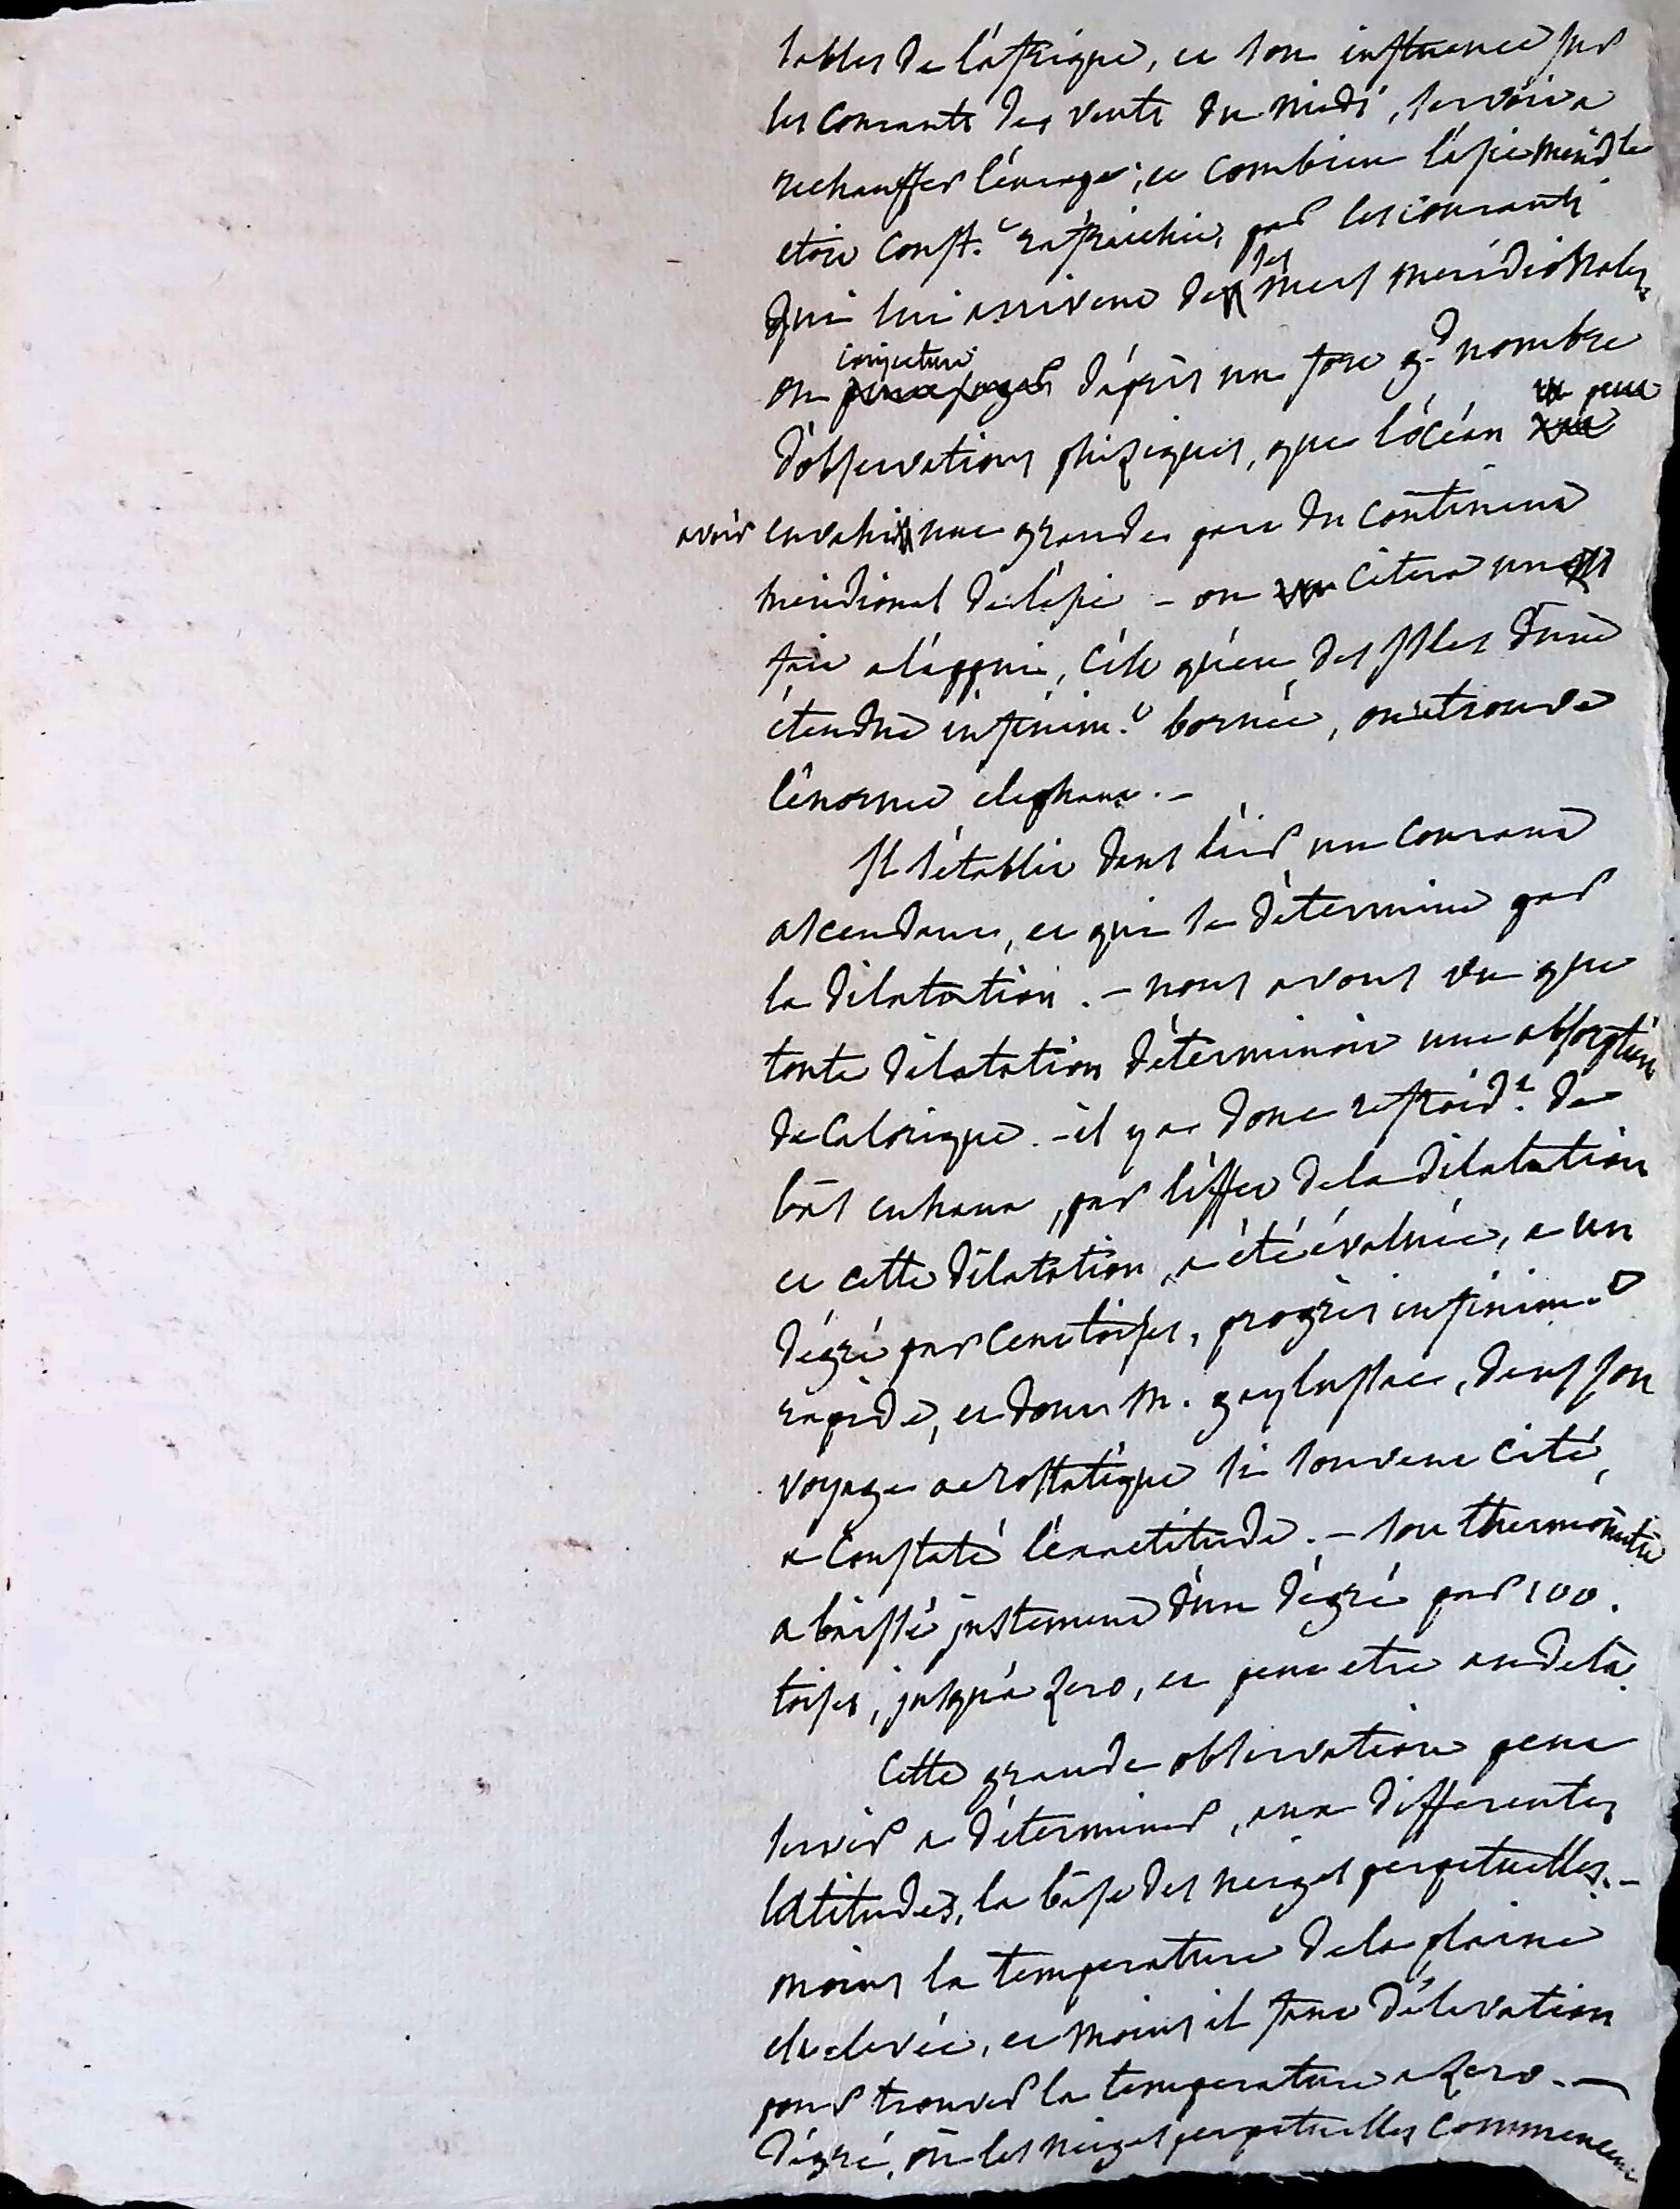 sables de l'afrique, et son influence sur
les courants des vents du midi, servoir a
rechauffer l'europe; et combien l'asie merid.le
etoit const.t rafraichie, par les courants
qui lui arrivent des mers meridionales,
on conjecture d'après un fort g.d nombre
d'observations phisiques, que l'océan peut
avoir envahi une grande part du continent
meridional de l'asie - on citera un
fait a l'appui, c'est qu'en des isles d'une
étendue infinim.t bornée, on trouve
l'énorme elephant. -
Il s'établit dans l'air un courant
ascendant, et qui se détermine par
la dilatation. - nous avons vu que
toute dilatation déterminoit une absorption
de calorique. - il y a donc refroid.t de
bas en haut, par l'effet de la dilatation
et cette dilatation, a été évaluée, a un
dégré par cent toises, progrès infinim.t
rapide, et dont M. gaylussac, dans son
voyage aerostatique si souvent cité,
a constaté l'exactitude. - son thermomètre
a baissé justement d'un dégré par 100.
toises, jusqu'à zero, et peut etre au dela.
Cette grande observation peut
servir a déterminer, aux differentes
latitudes, la base des neiges perpetuelles. -
moins la temperature de la plaine
est elevée, et moins il faut d'élevation
pour trouver la temperature a zero. -
dégré, où les neiges perpetuelles commencent